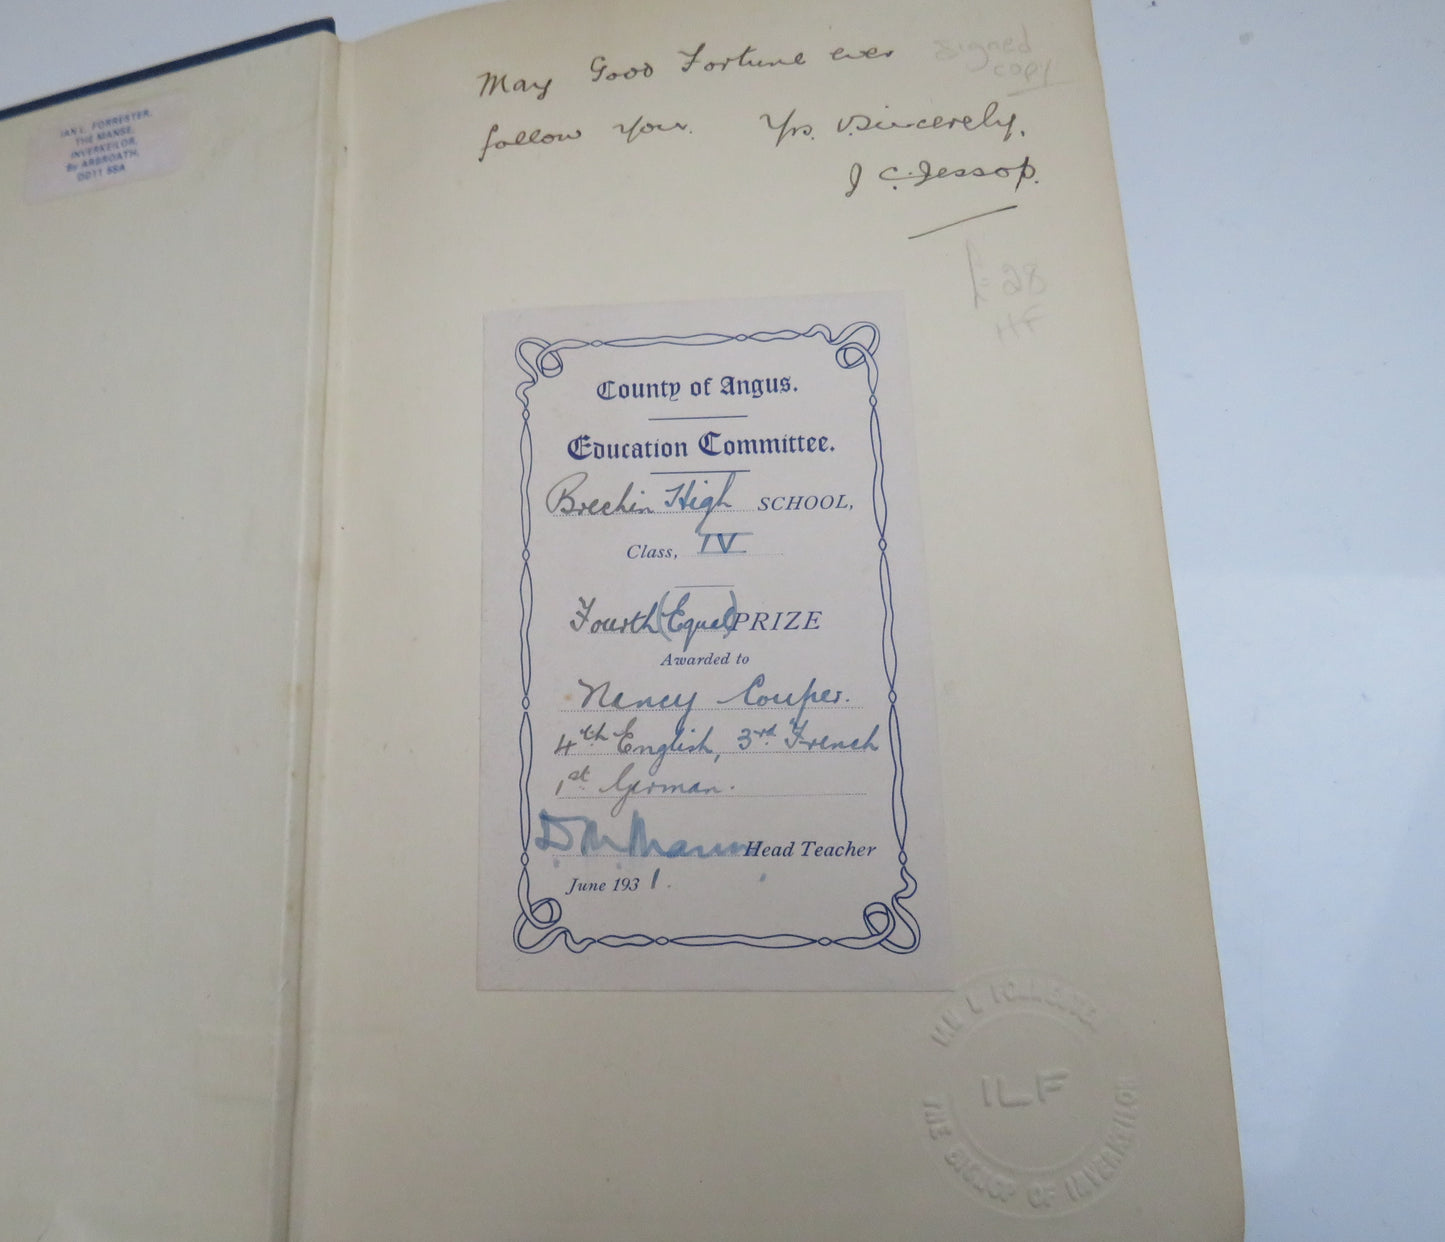 IAN L. FORRESTER,
THE MANSE,
INVERKEILOR,
By ARBROATH,
DD11 5SA
May Good Fortune ever
follow you. Yrs. Sincerely,
J C. Jessop.
Signed
copy
£28
HF
County of Angus.
Education Committee.
Brechin High SCHOOL,
Class, IV
Fourth (Equal) PRIZE
Awarded to
Nancy Couper.
4th English, 3rd French
1st German.
D M Head Teacher
June 1931.
L
ILF
THE BISHOP OF INVERKEILOR